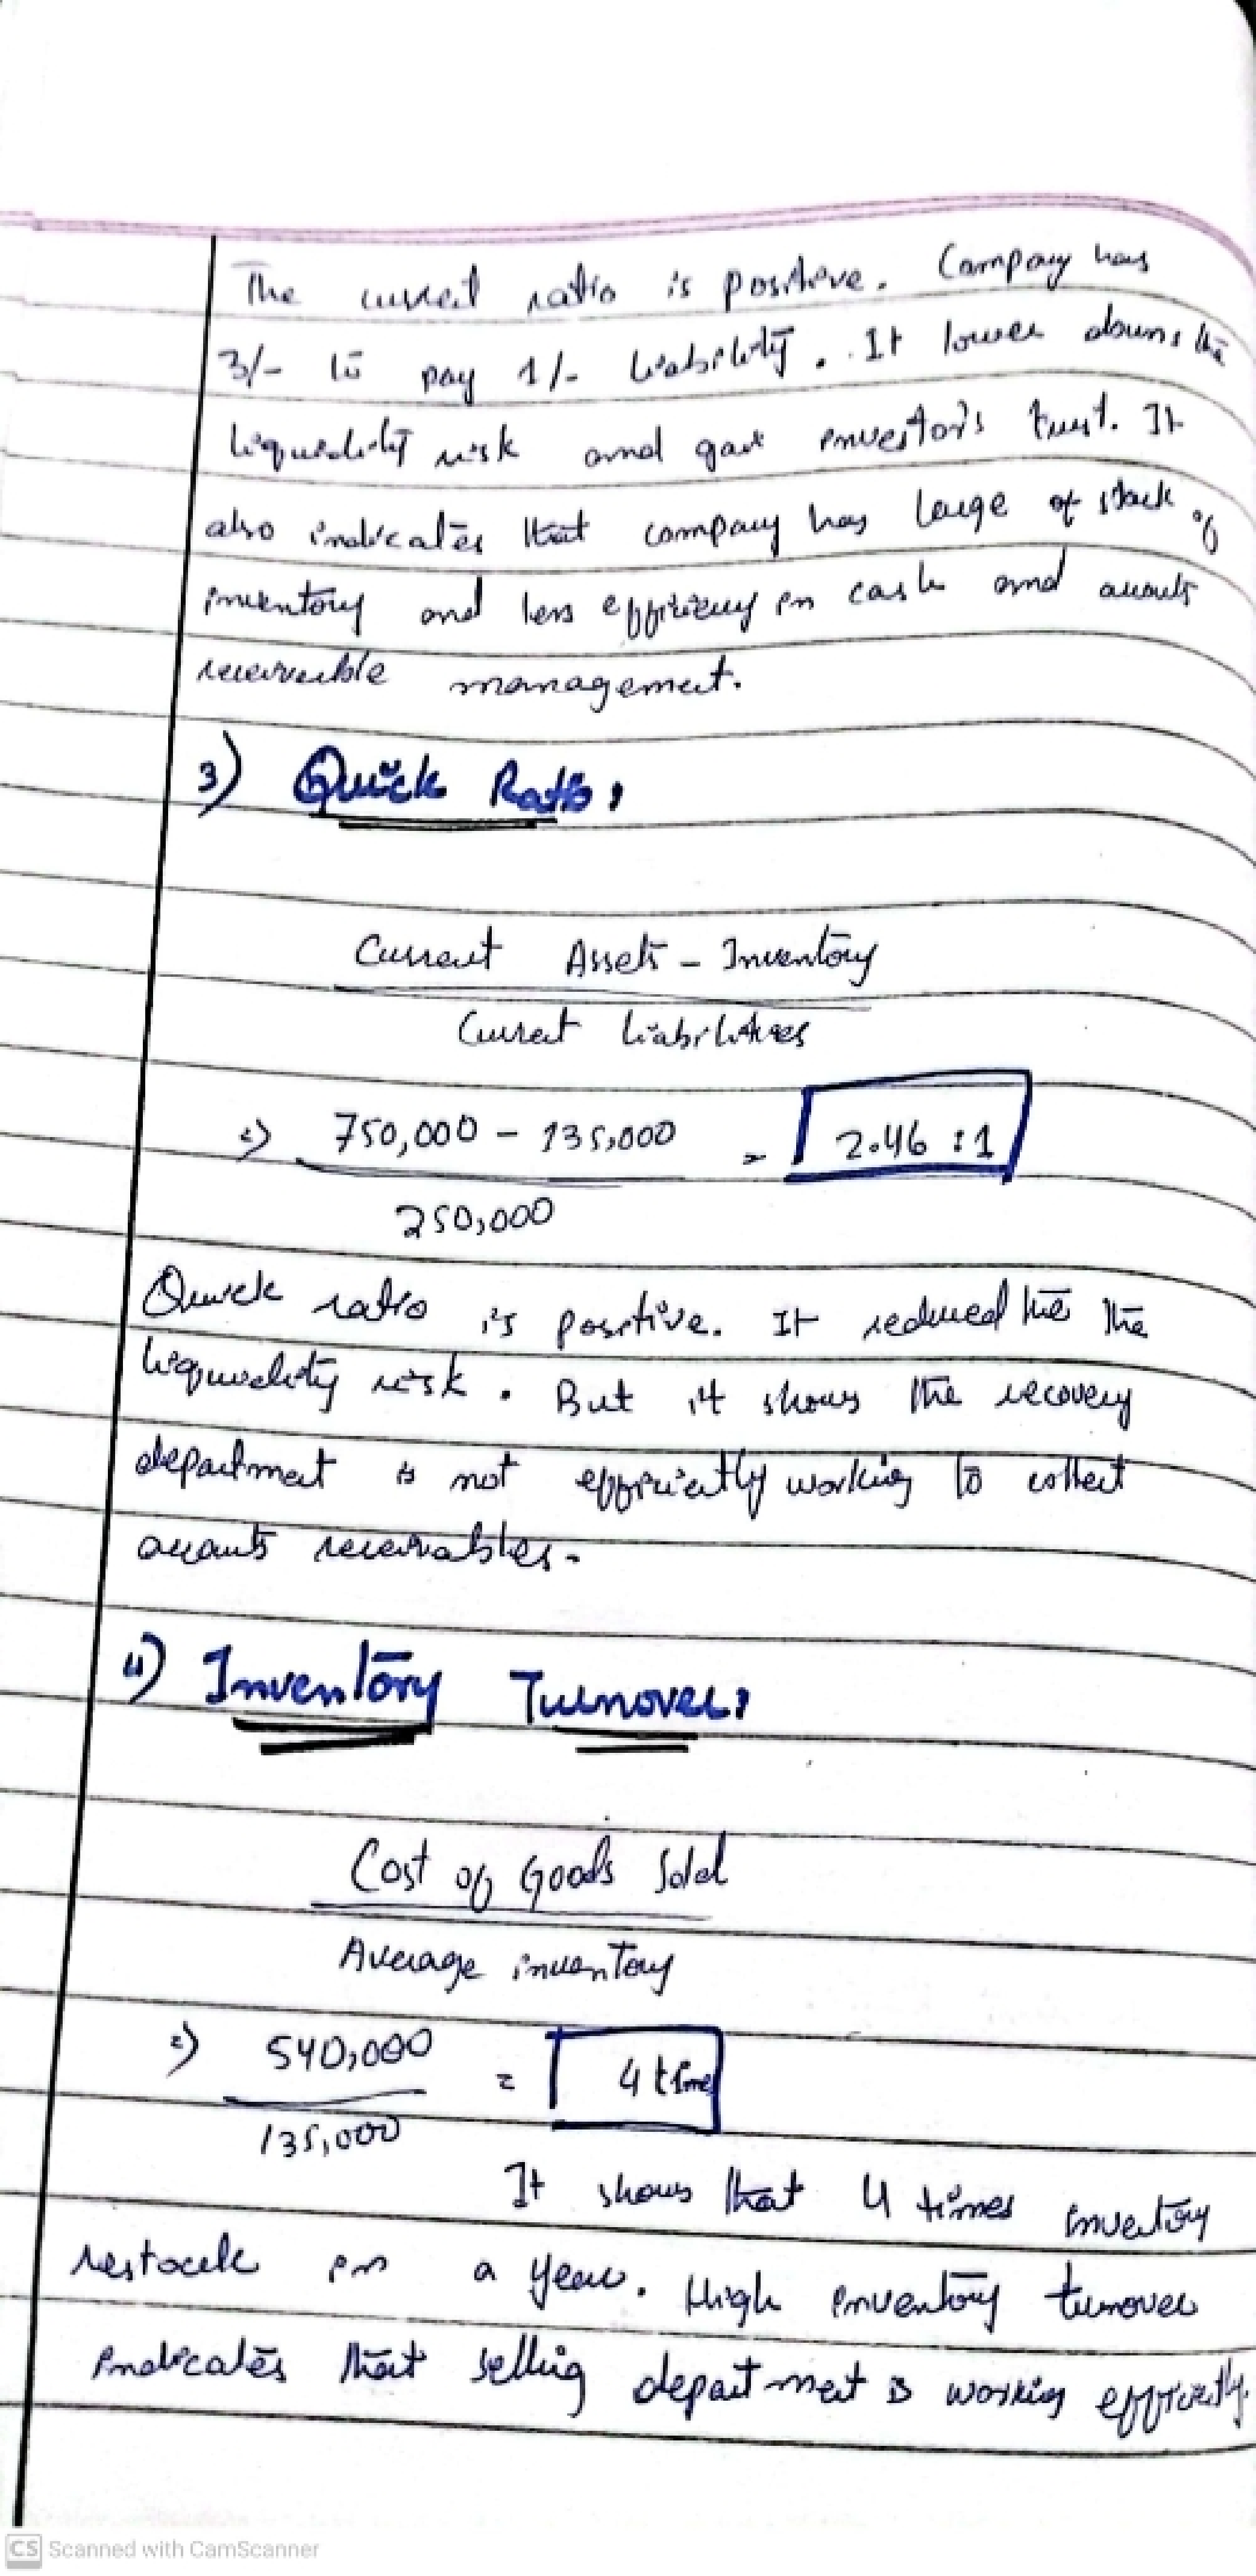 The current ratio is positive. Company has
3/- to pay 1/- liability. It lower downs the
liquidity risk and gain investor's trust. It
also indicates that company has large of stock of
inventory and less efficiency in cash and accounts
receivable management.
3) Quick Ratio:
Current Assets - Inventory
Current liabilities
=> 750,000 - 135,000 = 2.46 : 1
250,000
Quick ratio is positive. It reduced the the
liquidity risk. But it shows the recovery
department is not efficiently working to collect
accounts receivables.
4) Inventory Turnover:
Cost of Goods Sold
Average inventory
=> 540,000 = 4 time
135,000
It shows that 4 times inventory
restock in a year. High inventory turnover
indicates that selling department is working efficiently.
CS Scanned with CamScanner